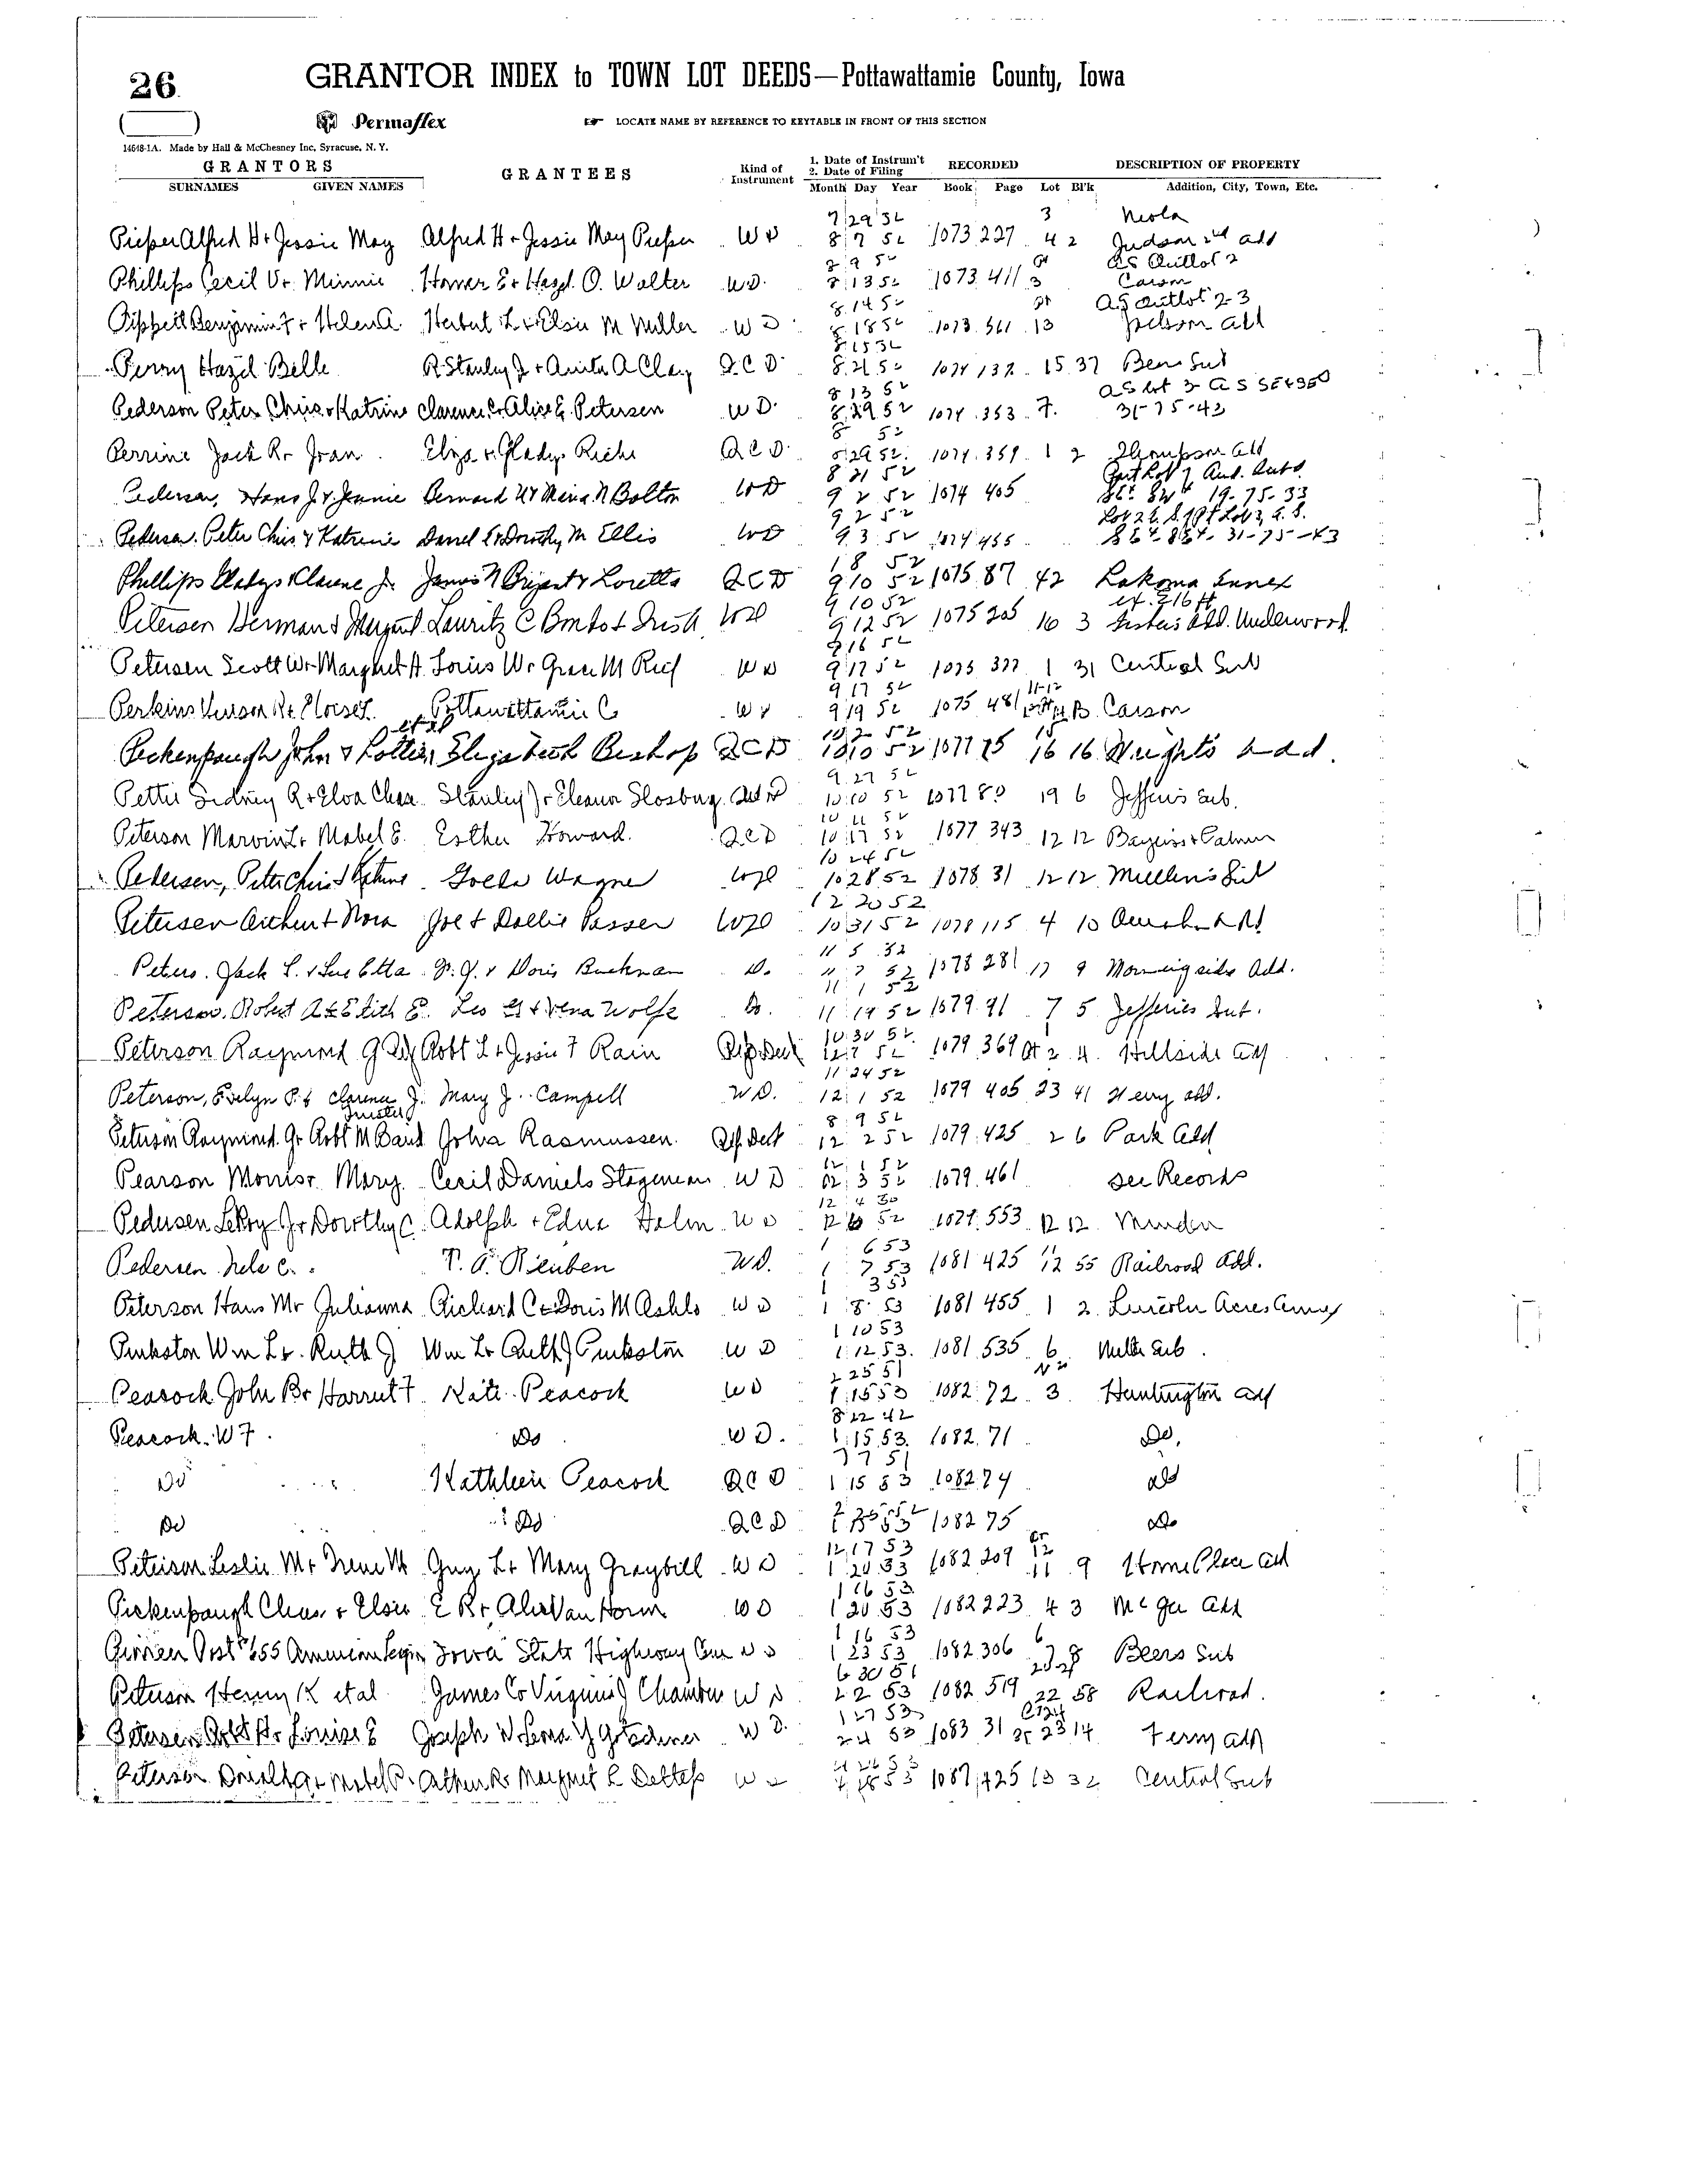 26
GRANTOR INDEX to TOWN LOT DEEDS—Pottawattamie County, Iowa
Permaflex
☞ LOCATE NAME BY REFERENCE TO KEYTABLE IN FRONT OF THIS SECTION
14648-1A. Made by Hall & McChesney Inc, Syracuse, N. Y.
GRANTORS GRANTEES Kind of Instrument 1. Date of Instrum't 2. Date of Filing RECORDED DESCRIPTION OF PROPERTY
SURNAMES GIVEN NAMES Month Day Year Book Page Lot Bl'k Addition, City, Town, Etc.
7 29 52 3 Neola
Pieper Alfred H + Jessie May Alfred H + Jessie May Pieper WD 8 7 52 1073 227 4 2 Judson 2nd add
8 9 52 Pt as Outlot 2
Phillips Cecil V + Minnie Homer E + Hazel O. Walter WD. 8 13 52 1073 411 3 Carson
8 14 52 pt AS Outlot 2-3
Benjamin F + Helen A. Herbert L + Elsie M Miller WD 8 18 52 1073 561 13 add
8 15 52
Perry Hazel Belle R Stanley J + Anita A Clay QCD 8 21 52 1074 137 15 37 Beers Sub
8 13 52
Pederson Peter Chris + Katrine Clarence C + Alice E. Petersen WD. 8 29 52 1074 353 7. 31-75-43
8 52
Perrine Jack R + Joan Gladys QCD. 8 29 52 1074 359 1 2 Thompson add
8 21 52 Part Lot 7 Aud. Subd
Pedersen, Hans J + Jennie Bernard W + Mina N Bolton WD 9 2 52 1074 405 19-75-33
9 2 52
Pedersen, Peter Chris & Katrine Dorothy M Ellis WD 9 3 52 1074 455 31-75-43
1 8 52
Phillips Gladys & Clarence Jr. James N Bryant & Loretta QCD 9 10 52 1075 87 42 Lakoma Annex
9 10 52 ex. 216 ft
Petersen Herman & Margaret Lauritz C WD 9 12 52 1075 205 16 3 Add. Underwood
9 16 52
Petersen Scott W + Margaret H. Louis W + Grace M Reif WD 9 17 52 1075 377 1 31 Central Sub
9 17 52 11-12
Perkins Vernon R + Pottawattamie Co WD 9 19 52 1075 481 B. Carson
et al 10 2 52 15
Peckenpaugh John & Lottie, Elizabeth Bishop QCD 10 10 52 1077 75 16 16 Wrights Add.
9 27 52
Pettit Sidney R + Elva Chas. Stanley J + Eleanor Slosburg 10 10 52 1077 80 19 6 Jefferis Sub.
10 11 52
Peterson Marvin L + Mabel E. Esther Howard. QCD 10 17 52 1077 343 12 12 Bayliss + Palmer
10 24 52
Pedersen, Peter Chris & Katrine Wagner WD 10 28 52 1078 31 12 12 Mullen's Sub
12 20 52
Petersen & Nora Joe & Dollie Passer WD 10 31 52 1078 115 4 10 Add
11 5 52
Peters. Jack L. & Sue Etta & Doris Buckman D. 11 7 52 1078 281 17 9 Morningside Add.
11 1 52
Peterson, Robert A & Edith E. Leo G & Vena Wolfe D. 11 14 52 1079 91 7 5 Jefferies Sub.
10 30 52 1
Peterson Raymond G Robt L + Jessie F Rain 12 7 52 1079 369 Pt 2 4. Hillside add
11 24 52
Peterson, Evelyn P. & Clarence J. Mary J. Campell WD. 12 1 52 1079 405 23 41 Add.
8 9 52
Peterson Raymond. Gr Robt M Baird Trustee Rasmussen. 12 2 52 1079 425 2 6 Park Add
12 1 52
Pearson Morris + Mary. Cecil Daniels Stageman WD 12 3 52 1079 461 See Records
12 4 50
Pedersen LeRoy J + Dorothy C. Adolph + Edna Halm WD 12 6 52 1079 553 12 12. Minden
1 6 53 11
Pedersen Nels C. T. A. Rieuben WD. 1 7 53 1081 425 12 55 Railroad Add.
1 3 53
Peterson Hans M + Julianna Richard C + Doris M Ashlo WD 1 8 53 1081 455 1 2 Lincoln Acres Annex
1 10 53
Pinkston Wm L + Ruth J Wm L + Ruth J Pinkston WD 1 12 53 1081 535 6 Sub.
2 25 51 N½
Peacock John B + Harriet F. Kate Peacock WD 1 15 53 1082 72 3 Huntington add
8 22 42
Peacock W F. Do WD. 1 15 53 1082 71 Do.
7 7 51
Do Kathleen Peacock QCD 1 15 53 1082 74 Do
Do Do QCD 1 15 53 1082 75 Do
12 17 53 12
Peterson Leslie M + Irene M Guy L + Mary Graybill WD 1 20 53 1082 209 11 9 Home Place add
1 16 53
Pickenpaugh Chas. + Elsie E R + Alice Van Horn WD 1 20 53 1082 223 4 3 McGee add
1 16 53 6
Post #655 American Legion Iowa State Highway Com WD 1 23 53 1082 306 7 8 Beers Sub
6 30 51
Peterson Henry K et al James C + Virginia J Chambers WD 2 2 53 1082 519 22 58 Railroad.
1 27 53
Petersen Robt H + Louise E Joseph W + Lena Y WD. 2 4 53 1083 31 23 14 Ferry add
Peterson Donald G + Mabel P. Arthur R + Margaret L WD 1087 425 13 32 Central Sub